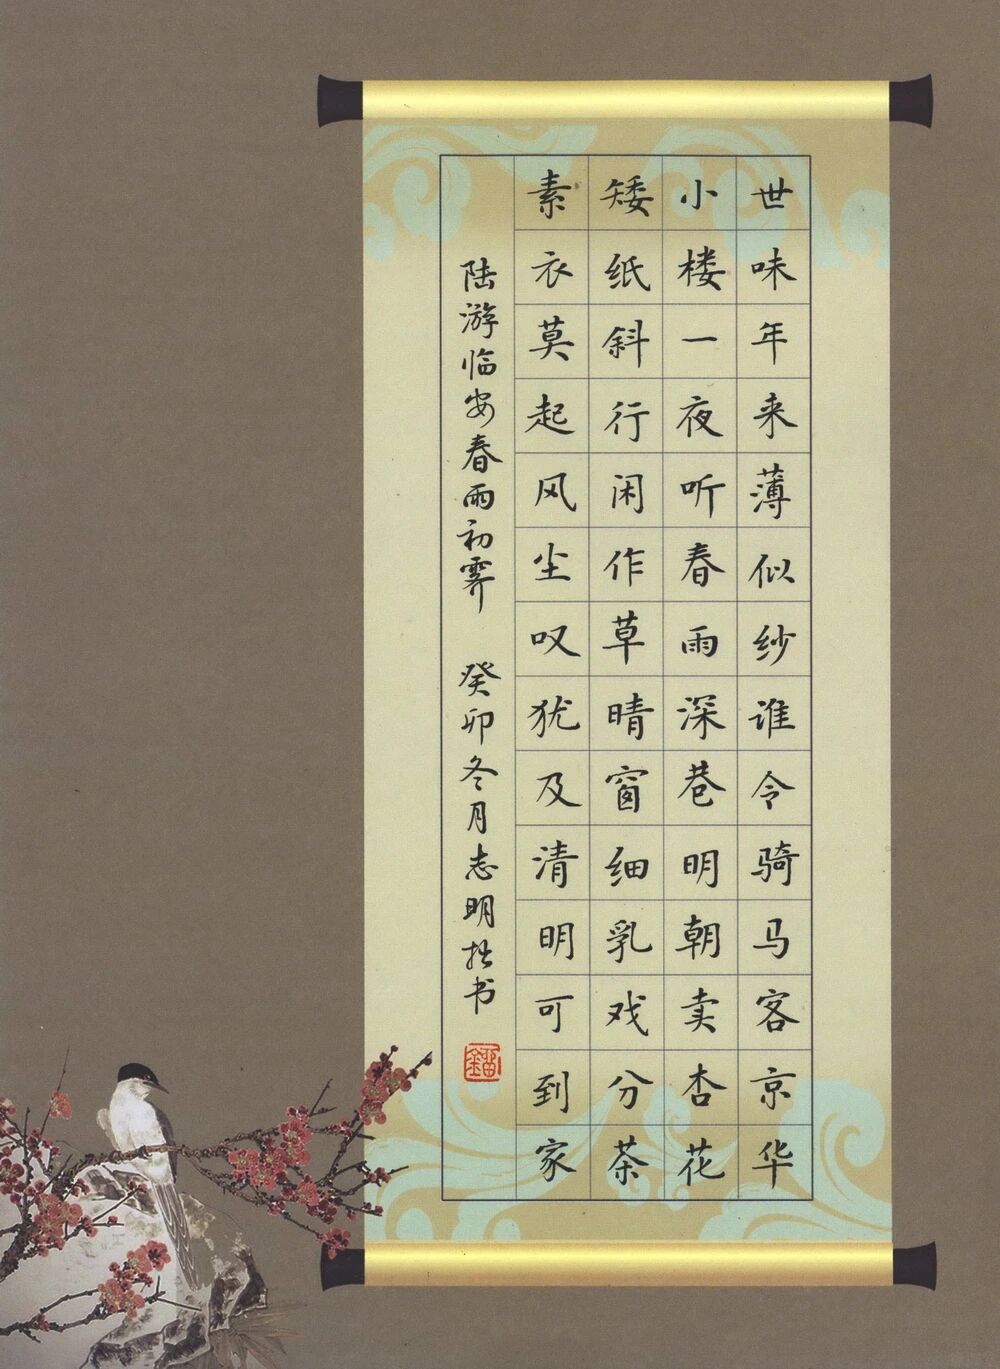 世味年来薄似纱谁令骑马客京华
小楼一夜听春雨深巷明朝卖杏花
矮纸斜行闲作草晴窗细乳戏分茶
素衣莫起风尘叹犹及清明可到家
陆游临安春雨初霁 癸卯冬月志明拙书